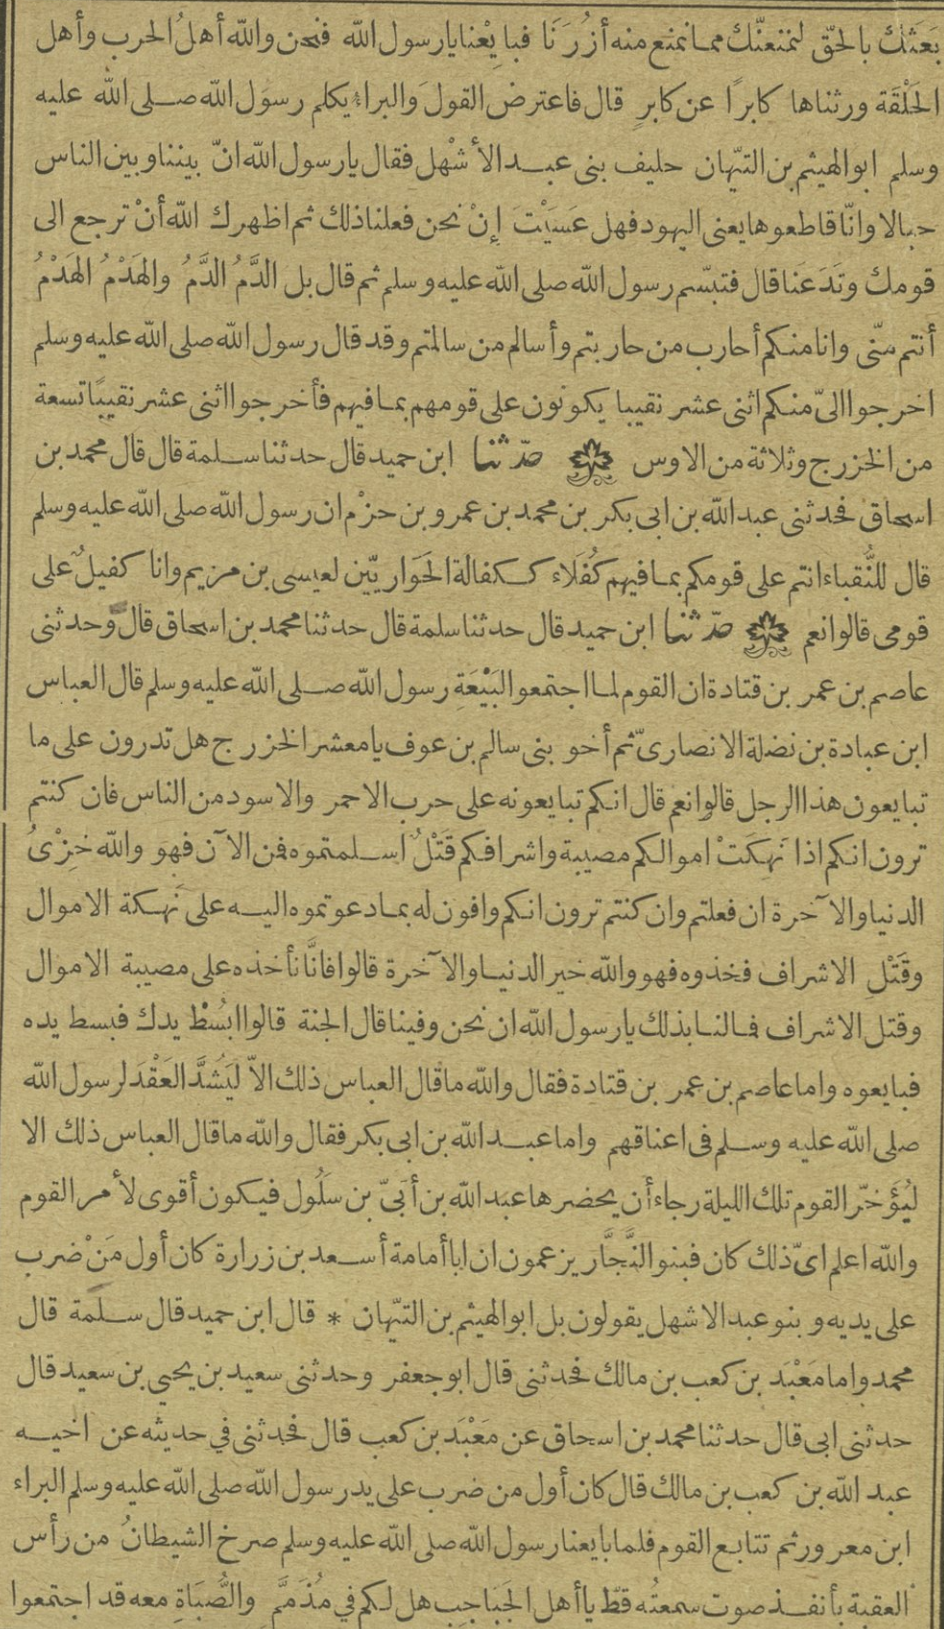 بَعَثَك بالحَقّ لنمنعنّك مما نمنع منه أزُرَنَا فبايِعْنا يا رسول الله فنحن والله أهلُ الحرب وأهل
الحَلْقَة ورثناها كابرًا عن كابرٍ قال فاعترض القولَ والبراءُ يكلم رسول الله صلى الله عليه
وسلم ابو الهيثم بن التيّهان حليف بنى عبد الأشْهل فقال يا رسول الله انّ بيننا وبين الناس
حبالا وانّا قاطعوها يعنى اليهود فهل عَسَيْتَ إنْ نحن فعلنا ذلك ثم اظهرك الله أنْ ترجع الى
قومك وتَدَعَنا قال فتبسّم رسول الله صلى الله عليه وسلم ثم قال بل الدَّمُ الدَّمُ والهَدْمُ الهَدْمُ
أنتم منّى وانا منكم أحارب من حاربتم وأسالم من سالمتم وقد قال رسول الله صلى الله عليه وسلم
اخرجوا الىّ منكم اثنى عشر نقيبا يكونون على قومهم بما فيهم فأخرجوا اثنى عشر نقيبًا تسعة
من الخزرج وثلاثة من الاوس حدّثنا ابن حميد قال حدثنا سلمة قال قال محمد بن
اسحاق فحدثنى عبد الله بن ابى بكر بن محمد بن عمرو بن حزْم ان رسول الله صلى الله عليه وسلم
قال للنُّقباء انتم على قومكم بما فيهم كُفَلَاء ككفالة الحَوَاريّين لعيسى بن مريم وانا كفيلٌ على
قومى قالوا نعم حدّثنا ابن حميد قال حدثنا سلمة قال حدثنا محمد بن اسحاق قال وحدثنى
عاصم بن عمر بن قتادة ان القوم لما اجتمعوا لبَيْعَةِ رسول الله صلى الله عليه وسلم قال العباس
ابن عبادة بن نضلة الانصارىّ ثم أخو بنى سالم بن عوف يا معشر الخزرج هل تدرون على ما
تبايعون هذا الرجل قالوا نعم قال انكم تبايعونه على حرب الاحمر والاسود من الناس فان كنتم
ترون انكم اذا نَهِكَتْ اموالكم مصيبة واشرافكم قَتْلٌ اسلمتموه فمن الآن فهو والله خِزْىُ
الدنيا والآخرة ان فعلتم وان كنتم ترون انكم وافون له بما دعوتموه اليه على نَهكة الاموال
وقَتْلِ الاشراف فخذوه فهو والله خير الدنيا والآخرة قالوا فانَّا نأخذه على مصيبة الاموال
وقتل الاشراف فما لنا بذلك يا رسول الله ان نحن وفينا قال الجنة قالوا ابُسُطْ يدك فبسط يده
فبايعوه واما عاصم بن عمر بن قتادة فقال والله ما قال العباس ذلك الاّ ليَشُدَّ العَقْدَ لرسول الله
صلى الله عليه وسلم فى اعناقهم واما عبد الله بن ابى بكر فقال والله ما قال العباس ذلك الا
ليُؤَخّر القوم تلك الليلة رجاء أن يحضرها عبد الله بن أُبَىّ بن سَلُول فيكون أقوى لأمر القوم
والله اعلم اىّ ذلك كان فبنو النَّجَّار يزعمون ان ابا أمامة أسعد بن زرارة كان أول مَنْ ضرب
على يديه وبنو عبد الاشهل يقولون بل ابو الهيثم بن التيّهان * قال ابن حميد قال سلمة قال
محمد واما مَعْبَد بن كعب بن مالك فحدثنى قال ابو جعفر وحدثنى سعيد بن يحيى بن سعيد قال
حدثنى ابى قال حدثنا محمد بن اسحاق عن مَعْبَد بن كعب قال فحدثنى في حديثه عن اخيه
عبد الله بن كعب بن مالك قال كان أول من ضرب على يد رسول الله صلى الله عليه وسلم البراء
ابن معرور ثم تتابع القوم فلما بايعنا رسول الله صلى الله عليه وسلم صرخ الشيطانُ من رأس
العقبة بأنفذ صوت سمعتُه قطّ يا أهل الجَبَاجِب هل لكم في مُذَمَّمٍ والصُّبَاةِ معه قد اجتمعوا